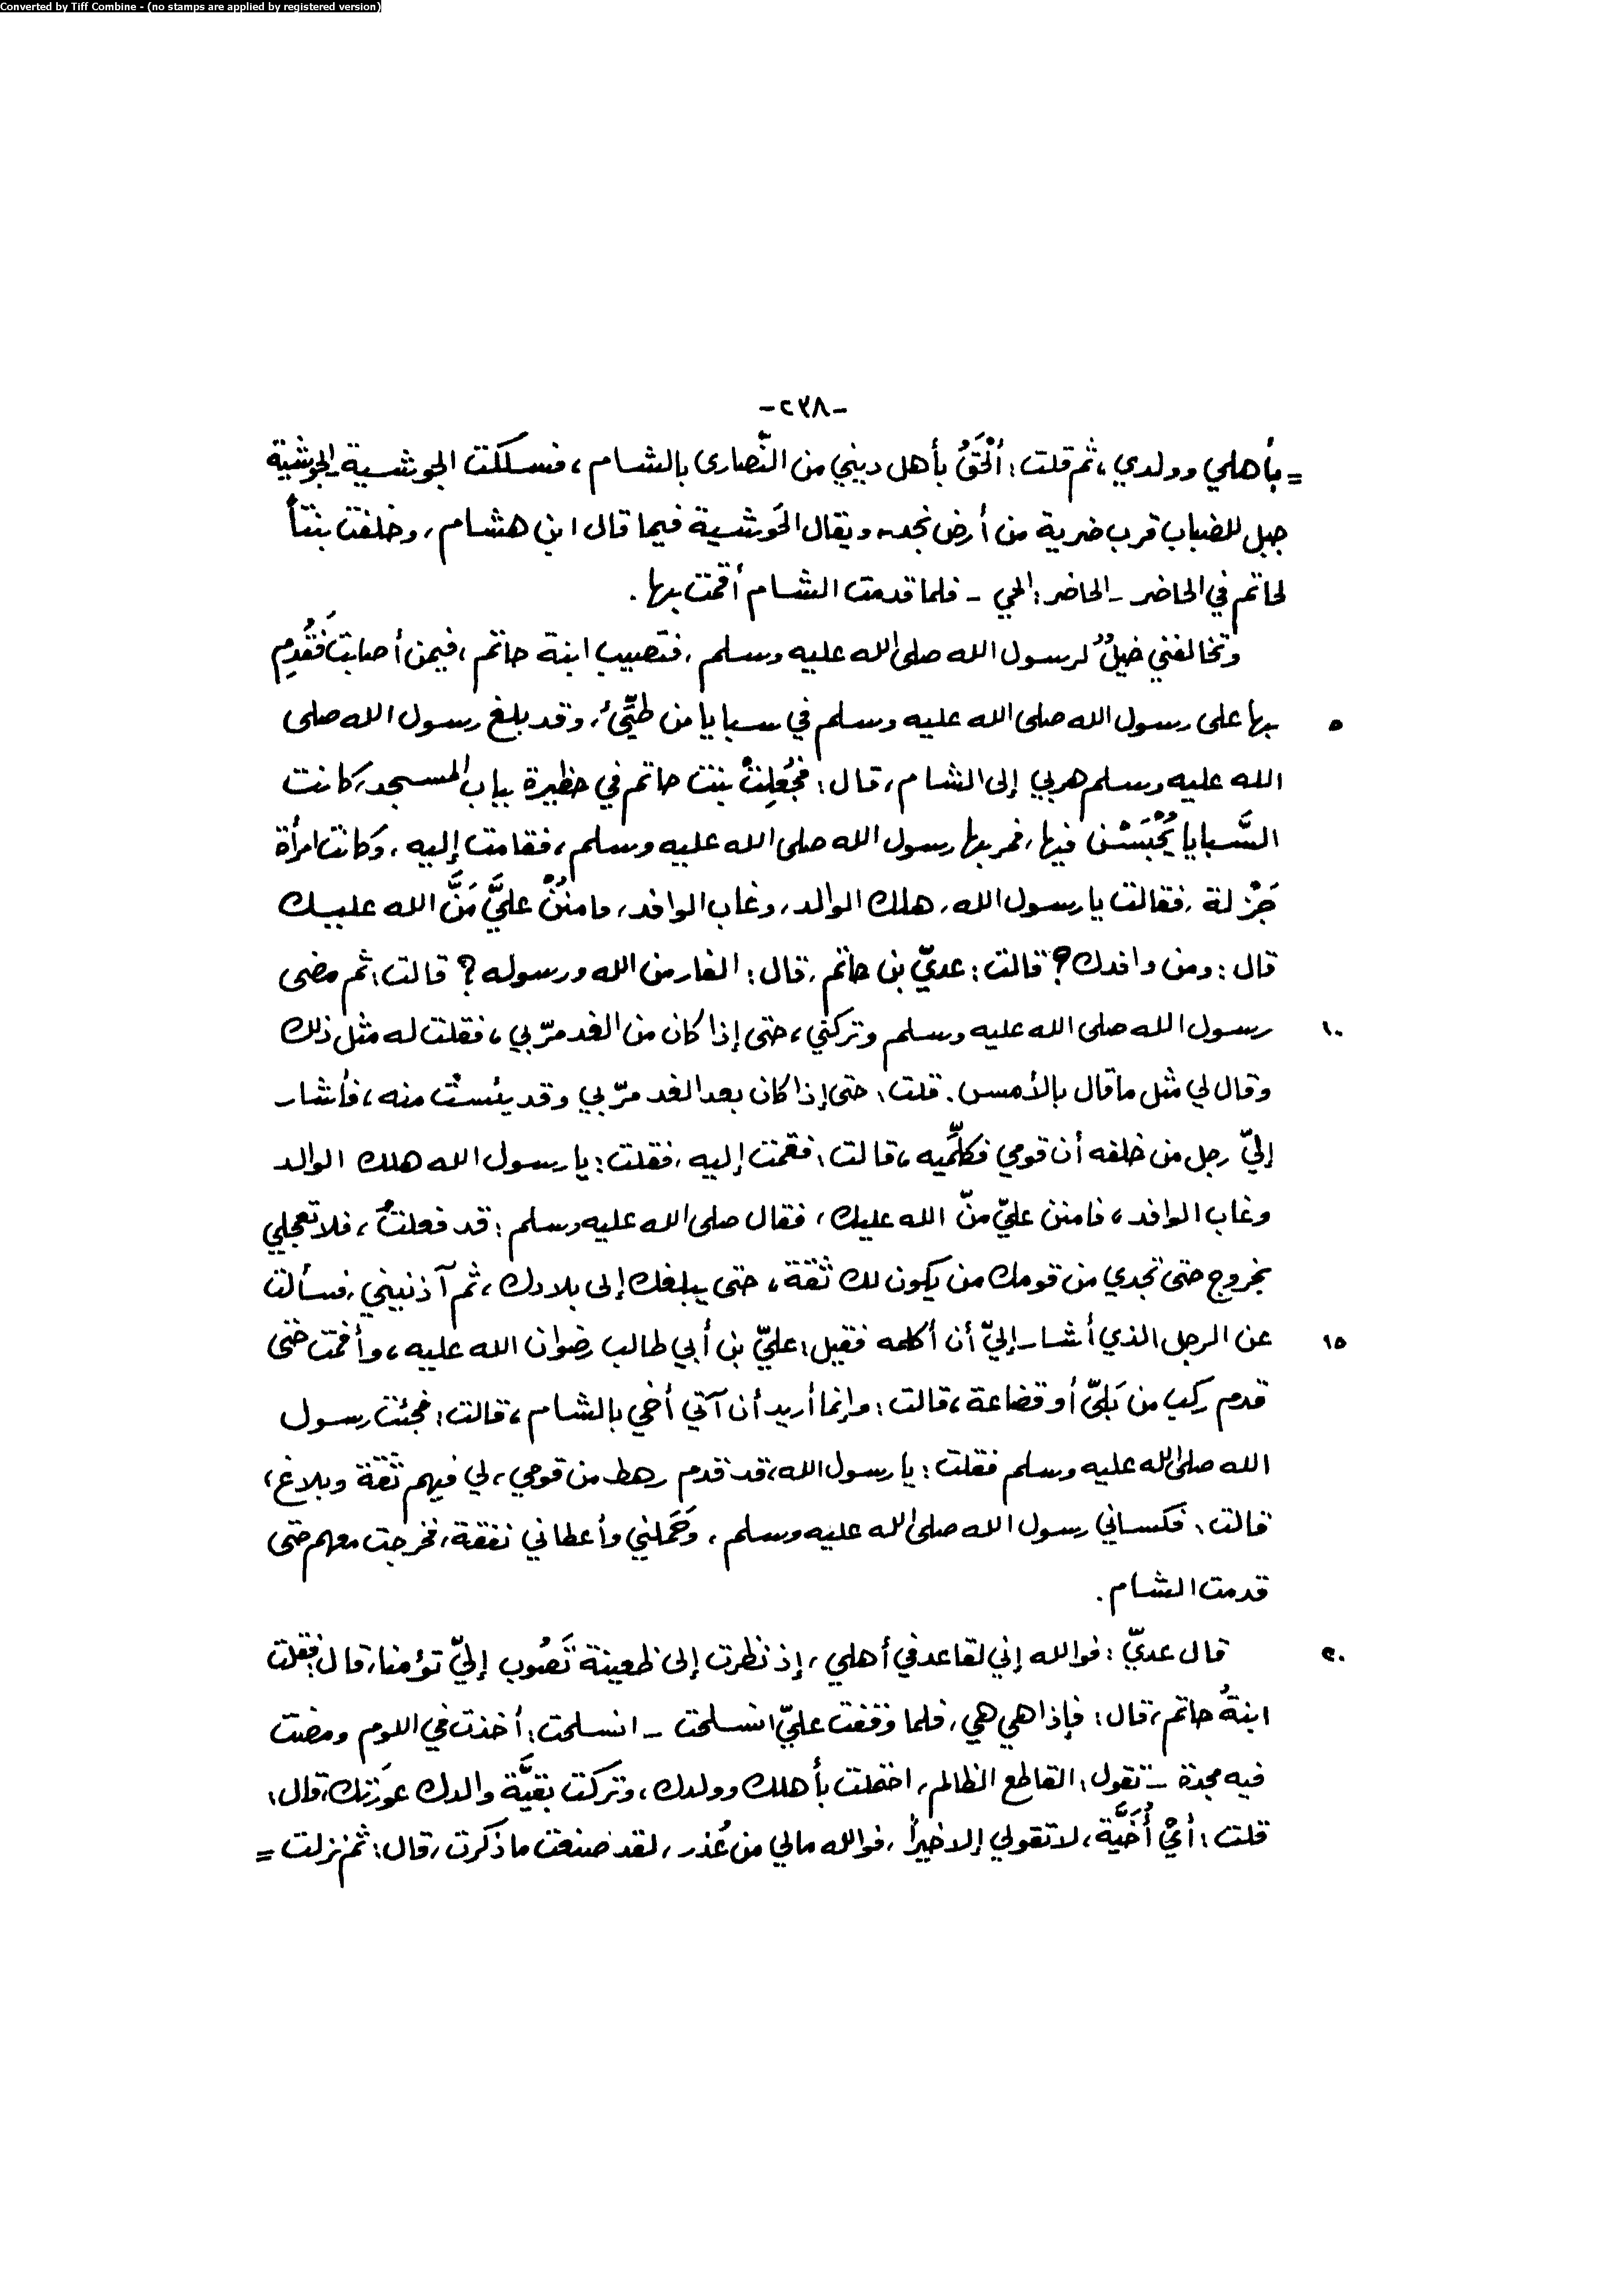 Converted by Tiff Combine - (no stamps are applied by registered version)
-٢٣٨-
= بأهلي وولدي، ثم قلت: أَلْحَقُ بأهل ديني من النّصارى بالشام، فسلكت الجوشية - الجوشية
جبل للضباب قرب ضرية من أرض نجد - ويقال الحَوشية فيما قال ابن هشام، وخلفت بنتاً
لحاتم في الحاضر - الحاضر: الحي - فلما قدمت الشام أقمت بها.
وتخالفني خيلٌ لرسول الله صلى الله عليه وسلم، فتصيب ابنة حاتم، فيمن أصابت، فَقُدِم
٥ بها على رسول الله صلى الله عليه وسلم في سبايا من طيِّئ، وقد بلغ رسول الله صلى
الله عليه وسلم هربي إلى الشام، قال: فجُعِلتْ بنت حاتم في حظيرة بباب المسجد، كانت
السَّبايا يُحْبَسْن فيها، فمر بها رسول الله صلى الله عليه وسلم، فقامت إليه، وكانت امرأة
جَزْلة، فقالت يا رسول الله، هلك الوالد، وغاب الوافد، فامنُنْ عليَّ مَنَّ الله عليك
قال: ومن وافدك؟ قالت: عديّ بن حاتم، قال: الفار من الله ورسوله؟ قالت: ثم مضى
١٠ رسول الله صلى الله عليه وسلم وتركني، حتى إذا كان من الغد مرّ بي، فقلت له مثل ذلك
وقال لي مثل ما قال بالأمس. قلت: حتى إذا كان بعد الغد مرّ بي وقد يئست منه، فأشار
إليّ رجل من خلفه أن قومي فكلِّميه، قالت: فقمت إليه، فقلت: يا رسول الله هلك الوالد
وغاب الوافد، فامنن عليّ منّ الله عليك، فقال صلى الله عليه وسلم: قد فعلتُ، فلا تعجلي
بخروج حتى تجدي من قومك من يكون لك ثقة، حتى يبلغك إلى بلادك، ثم آذنيني، فسألت
١٥ عن الرجل الذي أشار إليّ أن أكلمه فقيل: عليّ بن أبي طالب رضوان الله عليه، وأقمت حتى
قدم ركب من بَلِيّ أو قضاعة، قالت: وإنما أريد أن آتي أخي بالشام، قالت: فجئت رسول
الله صلى الله عليه وسلم فقلت: يا رسول الله، قد قدم رهط من قومي، لي فيهم ثقة وبلاغ،
قالت: فكساني رسول الله صلى الله عليه وسلم، وحَمَلني وأعطاني نفقة، فخرجت معهم حتى
قدمت الشام.
٢٠ قال عديّ: فوالله إني لقاعد في أهلي، إذ نظرت إلى ظعينة تَصُوب إليّ تؤمنا، قال: فقلت
ابنةُ حاتم، قال: فإذا هي هي، فلما وقفت عليّ انسلحت - انسلحت: أخذت في اللوم ومضت
فيه مجدة - تقول: القاطع الظالم، احتملت بأهلك وولدك، وتركت بقيَّة والدك عورتك، قال:
قلت: أيْ أُخَيَّة، لا تقولي إلا خيراً، فوالله مالي من عُذر، لقد صنعت ما ذكرت، قال: ثم نزلت =